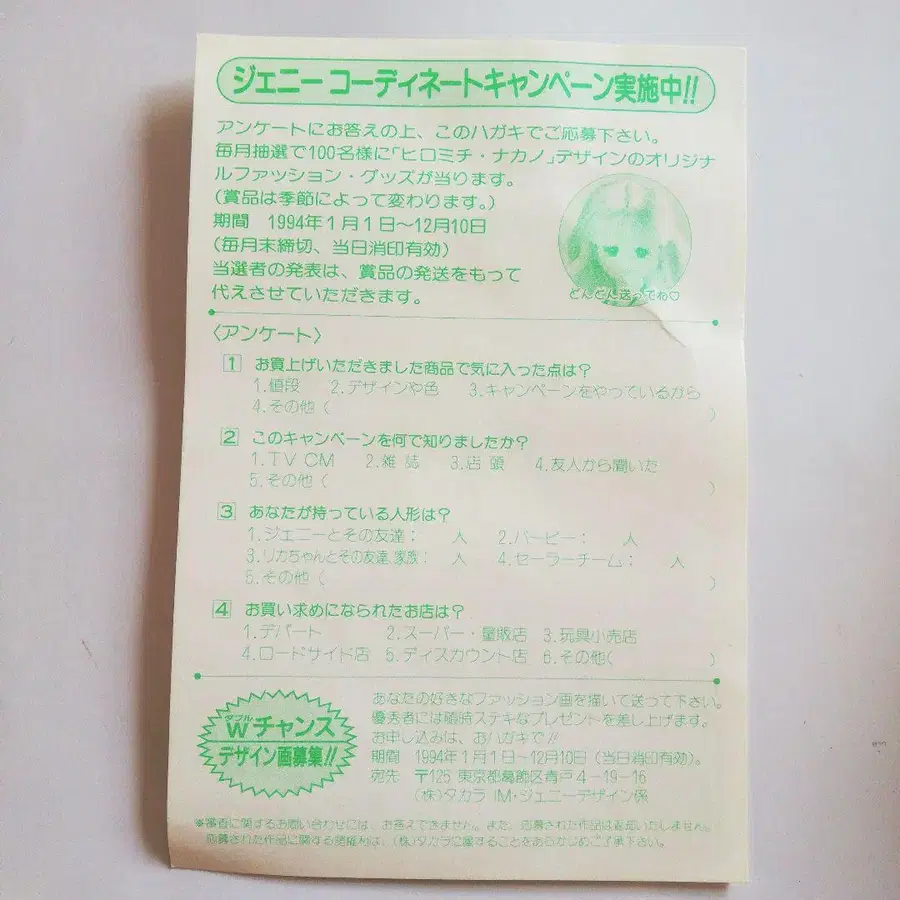 ジェニー コーディネートキャンペーン実施中!!
アンケートにお答えの上、このハガキでご応募下さい。
毎月抽選で100名様に「ヒロミチ・ナカノ」デザインのオリジナ
ルファッション・グッズが当ります。
(賞品は季節によって変わります。)
期間 1994年1月1日〜12月10日
(毎月末締切、当日消印有効)
当選者の発表は、賞品の発送をもって
代えさせていただきます。
どんどん送ってね♡
〈アンケート〉
1 お買上げいただきました商品で気に入った点は?
1.値段 2.デザインや色 3.キャンペーンをやっているから
4.その他( )
2 このキャンペーンを何で知りましたか?
1.TV CM 2.雑誌 3.店頭 4.友人から聞いた
5.その他( )
3 あなたが持っている人形は?
1.ジェニーとその友達: 人 2.バービー: 人
3.リカちゃんとその友達、家族: 人 4.セーラーチーム: 人
5.その他( )
4 お買い求めになられたお店は?
1.デパート 2.スーパー・量販店 3.玩具小売店
4.ロードサイド店 5.ディスカウント店 6.その他( )
ダブル
Wチャンス
デザイン画募集!!
あなたの好きなファッション画を描いて送って下さい。
優秀者には随時ステキなプレゼントを差し上げます。
お申し込みは、おハガキで!!
期間 1994年1月1日〜12月10日(当日消印有効)。
宛先 〒125 東京都葛飾区青戸4-19-16
(株)タカラ IM・ジェニーデザイン係
※審査に関するお問い合わせには、お答えできません。また、応募された作品は返品いたしません。
応募された作品に関する諸権利は、(株)タカラに属することをあらかじめご了承下さい。